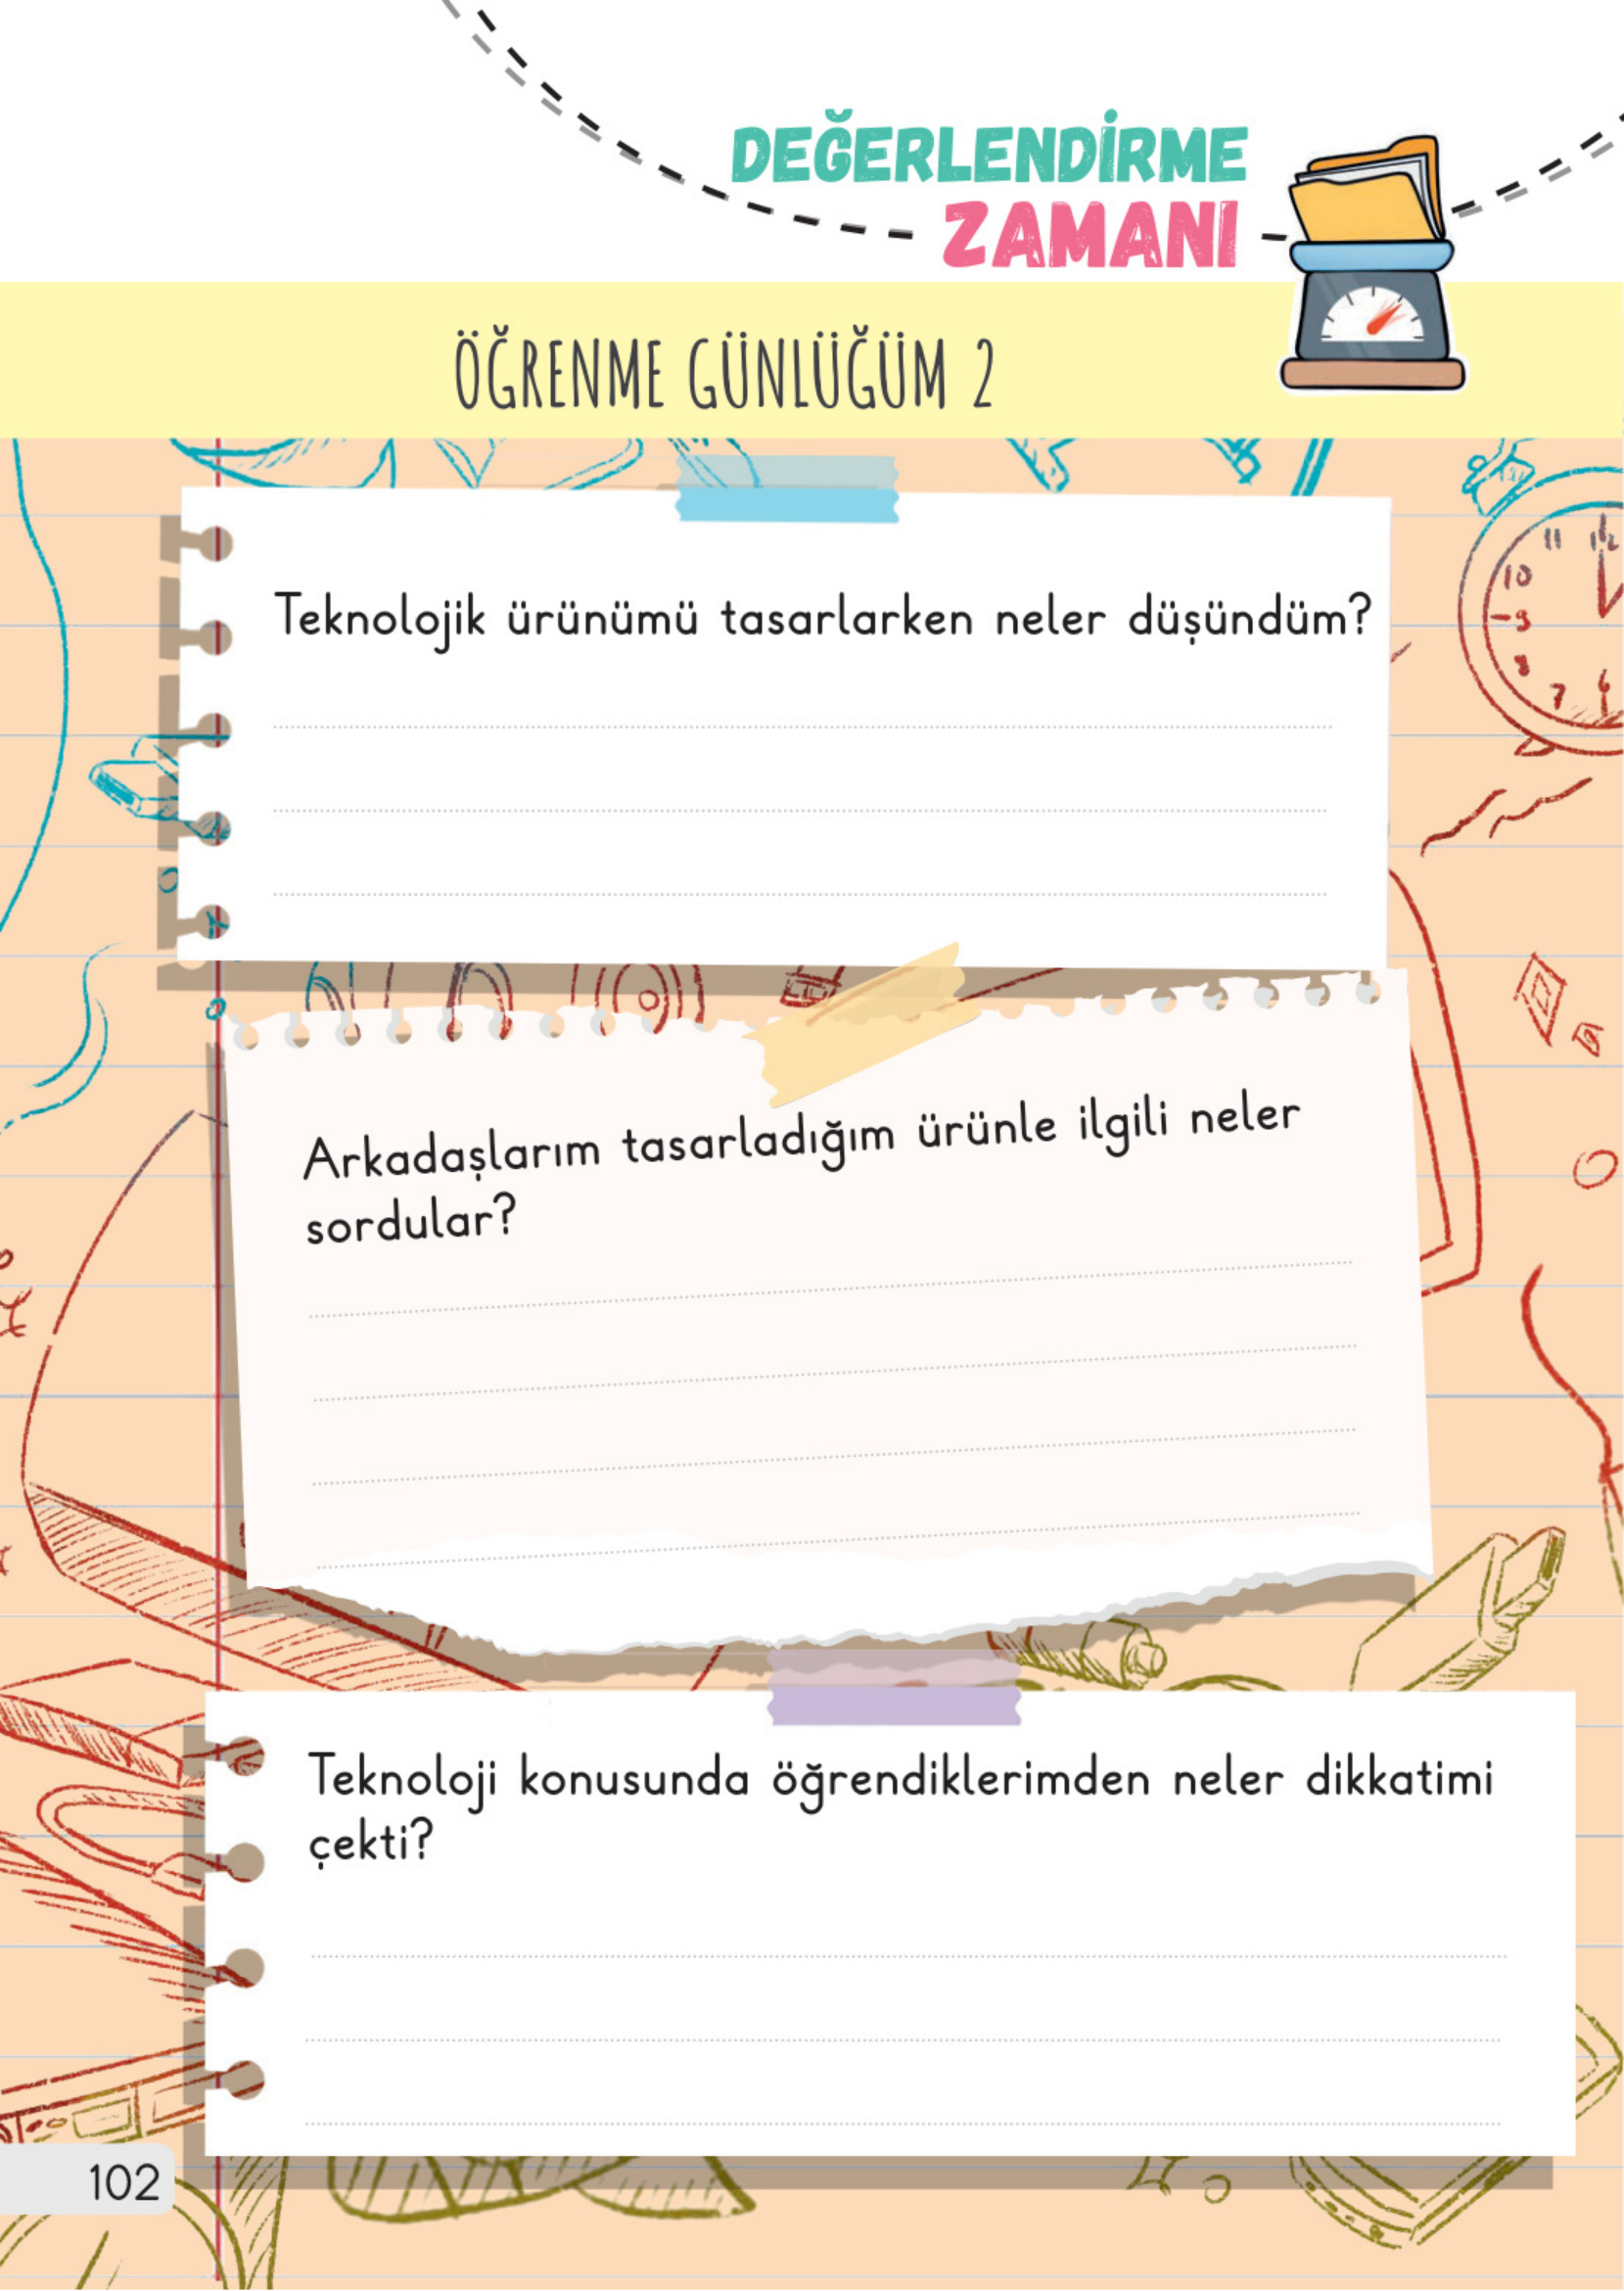 DEĞERLENDİRME
ZAMANI
ÖĞRENME GÜNLÜĞÜM 2
Teknolojik ürünümü tasarlarken neler düşündüm?
Arkadaşlarım tasarladığım ürünle ilgili neler
sordular?
Teknoloji konusunda öğrendiklerimden neler dikkatimi
çekti?
102